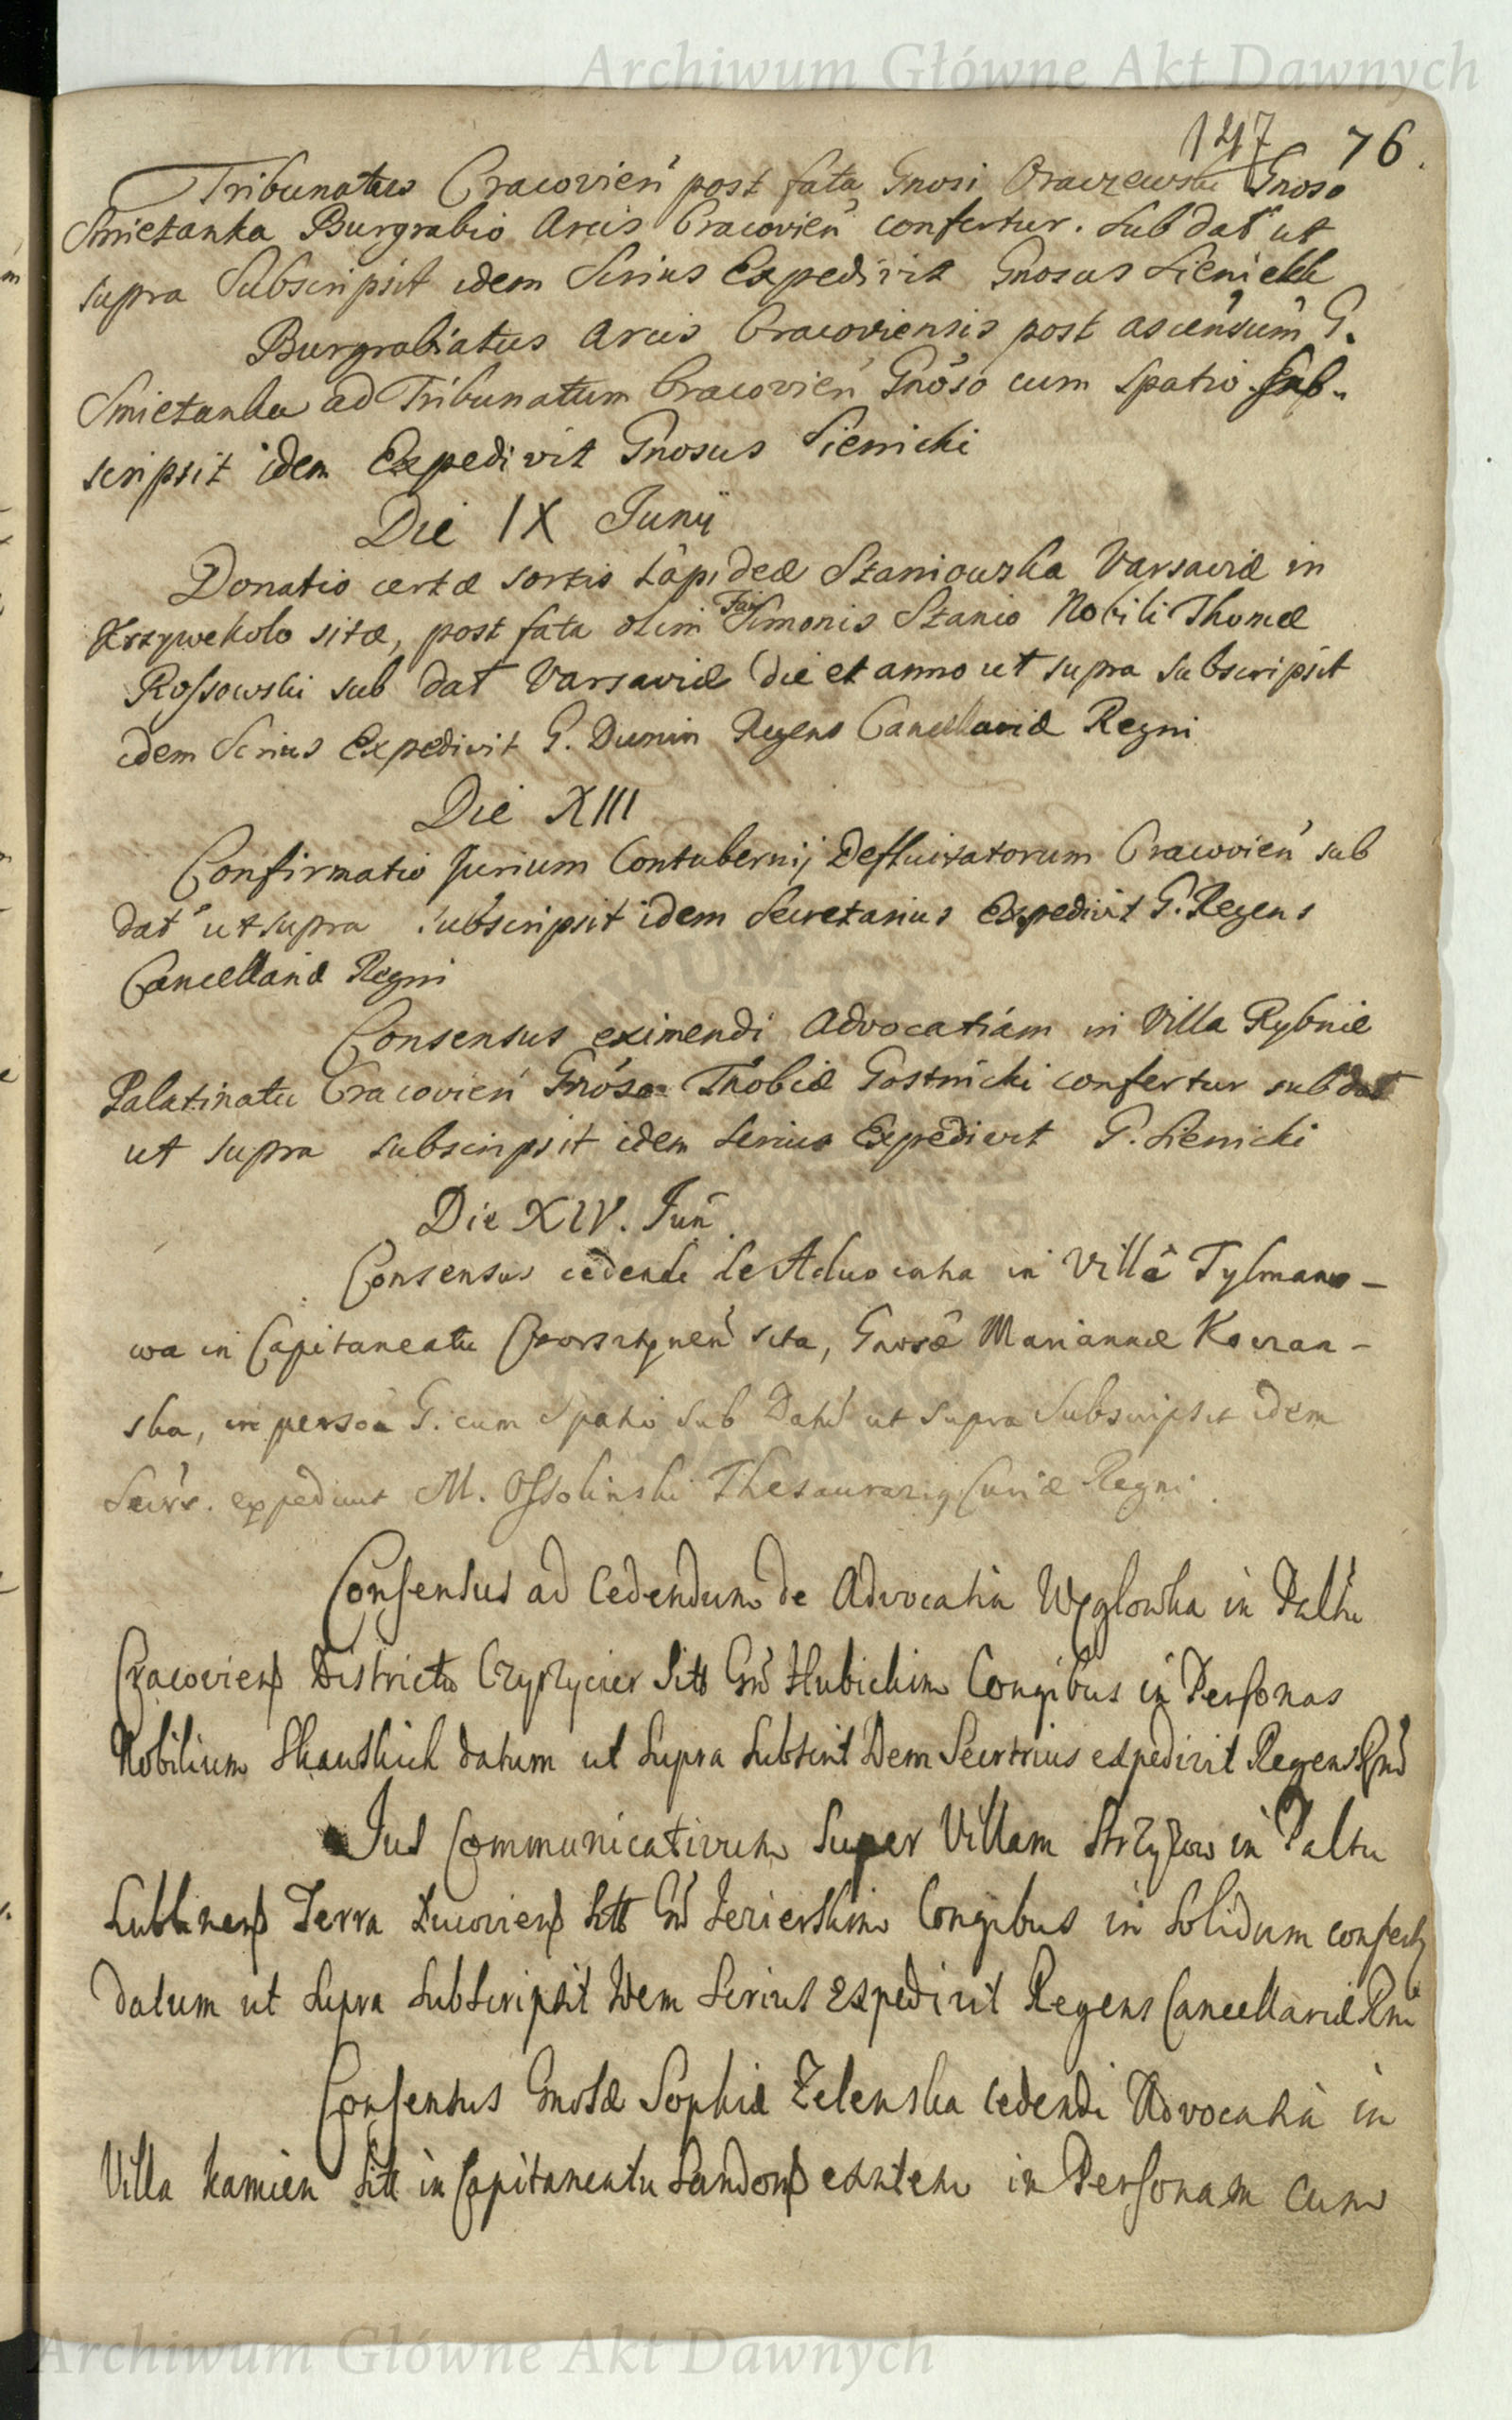 Archiwum Główne Akt Dawnych
147 76.
Tribunatus Cracovień post fata Gnosi Oraczewski Gnoso
Smietanka Burgrabio Arcis Cracovień confertur. Sub dat ut
supra Subscripsit idem Scrius Expedivit Gnosus Sienicki
Burgrabiatus Arcis Cracoviensis post ascensum G.
Smietanka ad Tribunatum Cracovień Gnoso cum Spatio Sub-
scripsit idem Expedivit Gnosus Sienicki
Die IX Junij
Donatio certæ sortis Lapideæ Staniowska Varsaviæ in
Krzywekolo sitæ, post fata olim Simonis Stanio Nobili Thomæ
Rossowski sub dat Varsaviæ die et anno ut supra subscripsit
idem Scrius Expedivit G. Dunin Regens Cancellariæ Regni
Die XIII
Confirmatio Jurium Contubernij Defluitatorum Cracovień sub
dat ut supra subscripsit idem Secretarius Expedivit G. Regens
Cancellariæ Regni
Consensus eximendi Advocatiam in Villa Rybnie
Palatinatu Cracovień Gnoso Thobiæ Gostnicki confertur sub dat
ut supra subscripsit idem Scrius Expedivit G. Sienicki
Die XIV. Jun
Consensus cedendi de Advocatia in Villâ Tylmano-
wa in Capitaneatu Czorsztynen sita, Gnosæ Mariannæ
ska, in persoã G. cum Spatio sub Dat ut supra Subscripsit idem
Secrs. expedivit M. Ossolinski Thesaurarig Curiæ Regni.
Consensus ad Cedendum de Advocatia Węglowka in Paltu
Cracoviens Districtu Sitt Gn Hubickim Congibus in Personas
Nobilium datum ut Supra Subscrit Idem Secrtrius expedivit Regens Rni
Jus Communicativum Super Villam Strzyzow in Paltu
Lublinens Terra Lucoviens Sitt Gn Jezierskim Congibus in Solidum confert
Datum ut Supra Subscripsit Idem Scrius Expedivit Regens Cancellariæ Rni
Consensus Gnosæ Sophiæ Zelenska Cedendi Advocatia in
Villa Kamien Sitt in Capitaneatu Sandoms in Personam Cum
Archiwum Główne Akt Dawnych